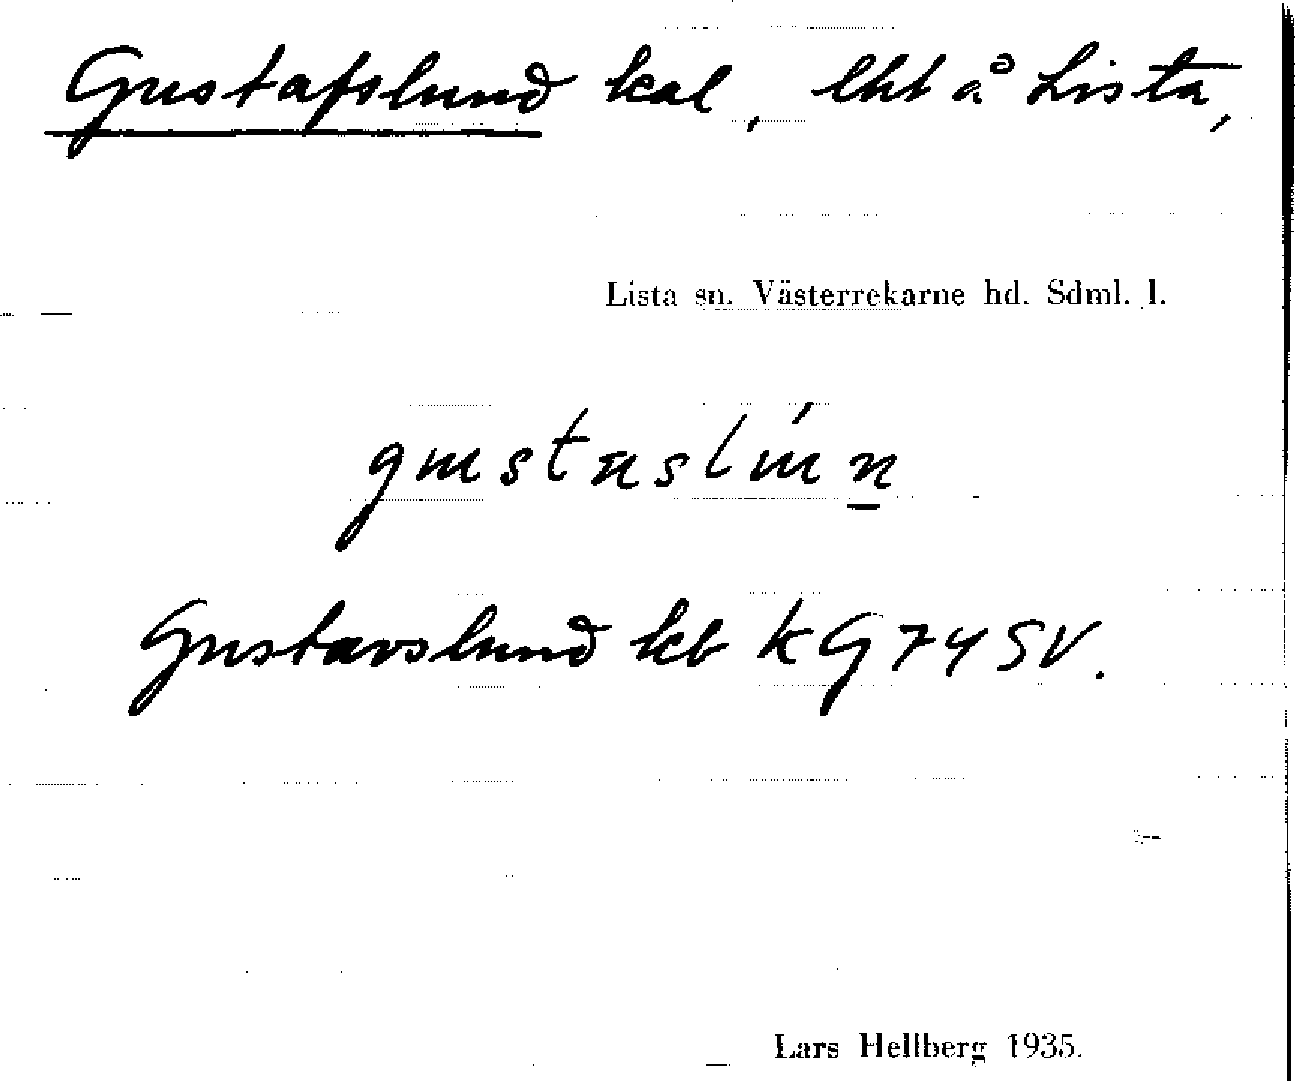 Gustafslund kal, lht å Lista,
Lista sn. Västerrekarne hd. Sdml. l.
Gustavslund kb KG 74 SV.
Lars Hellberg 1935.